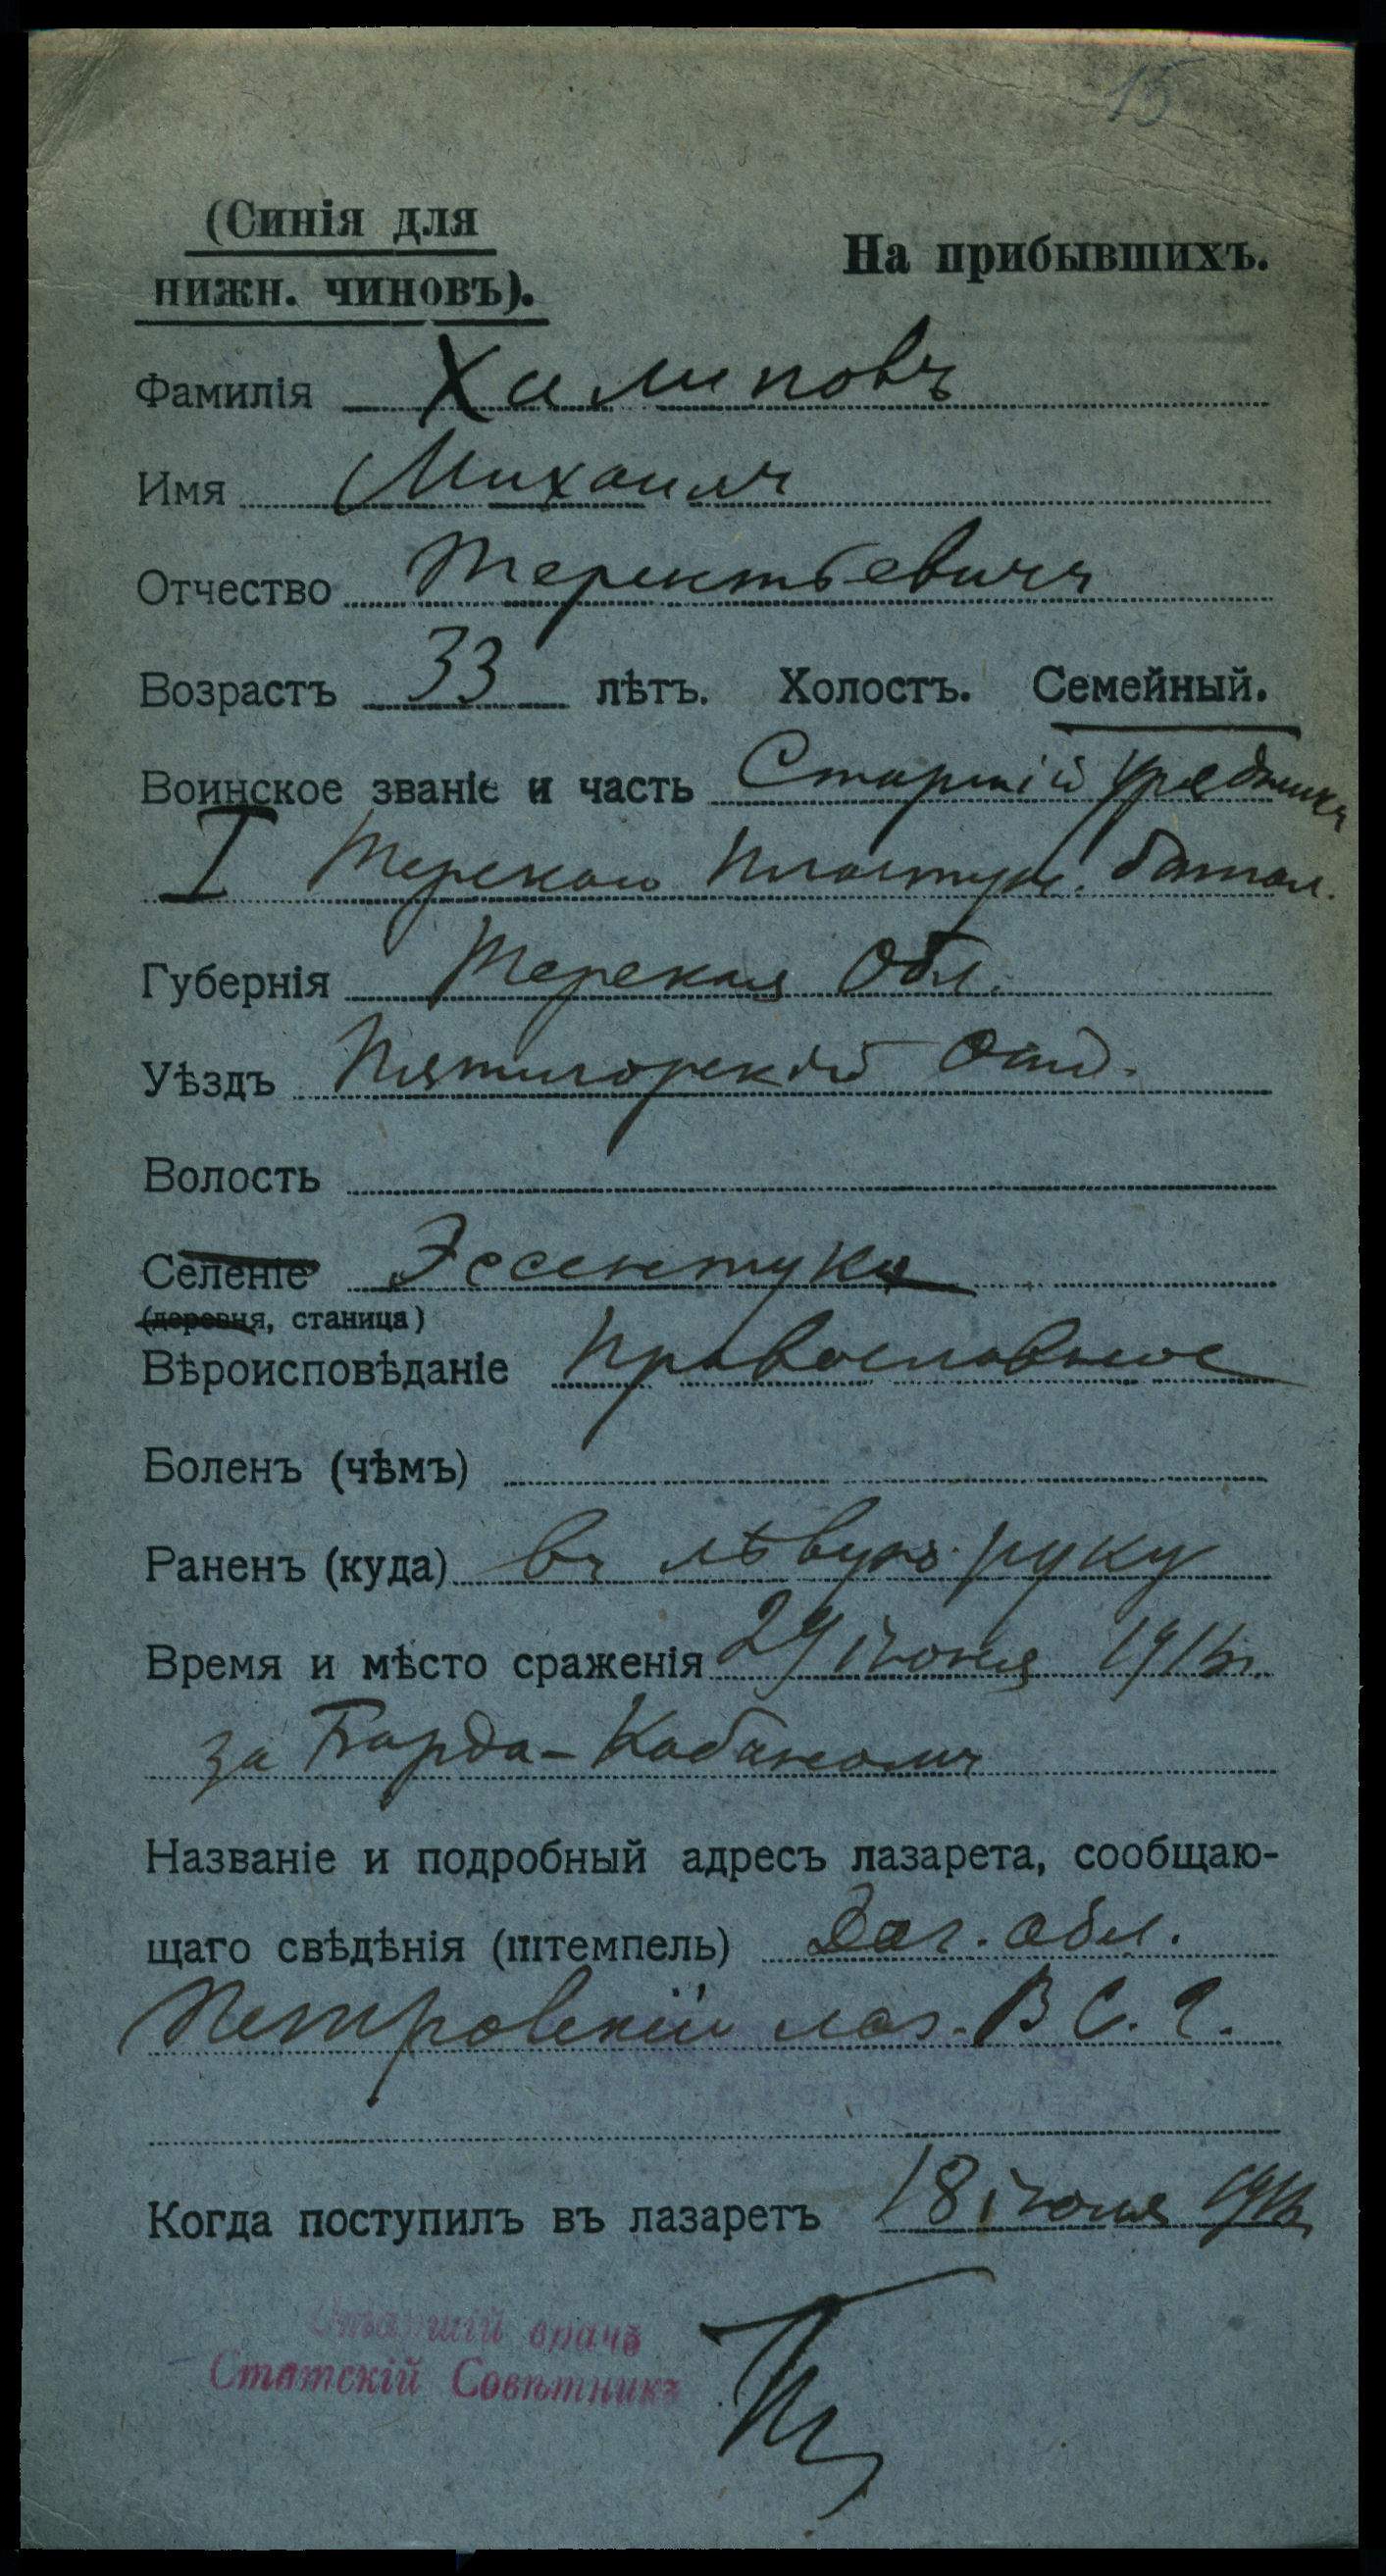 15
(Синія для
нижн. чиновъ).
На прибывшихъ.
Фамилія Халиповъ
Имя Михаилъ
Отчество Терентьевичъ
Возрастъ 33 лѣтъ. Холостъ. Семейный.
Воинское званіе и часть Старшій Урядникъ
I Терскаго Пластун. батал.
Губернія Терская Обл.
Уѣздъ Пятигорскій Отд.
Волость
Селеніе Эссентуки
(деревня, станица)
Вѣроисповѣданіе Православное
Боленъ (чѣмъ)
Раненъ (куда) въ лѣвую руку
Время и мѣсто сраженія 29 іюня
за
Названіе и подробный адресъ лазарета, сообщаю-
щаго свѣдѣнія (штемпель) Даг. обл.
Петровскій лаз. В С. Г.
Когда поступилъ въ лазаретъ 18 іюля
Старшій врачъ
Статскій Совѣтникъ